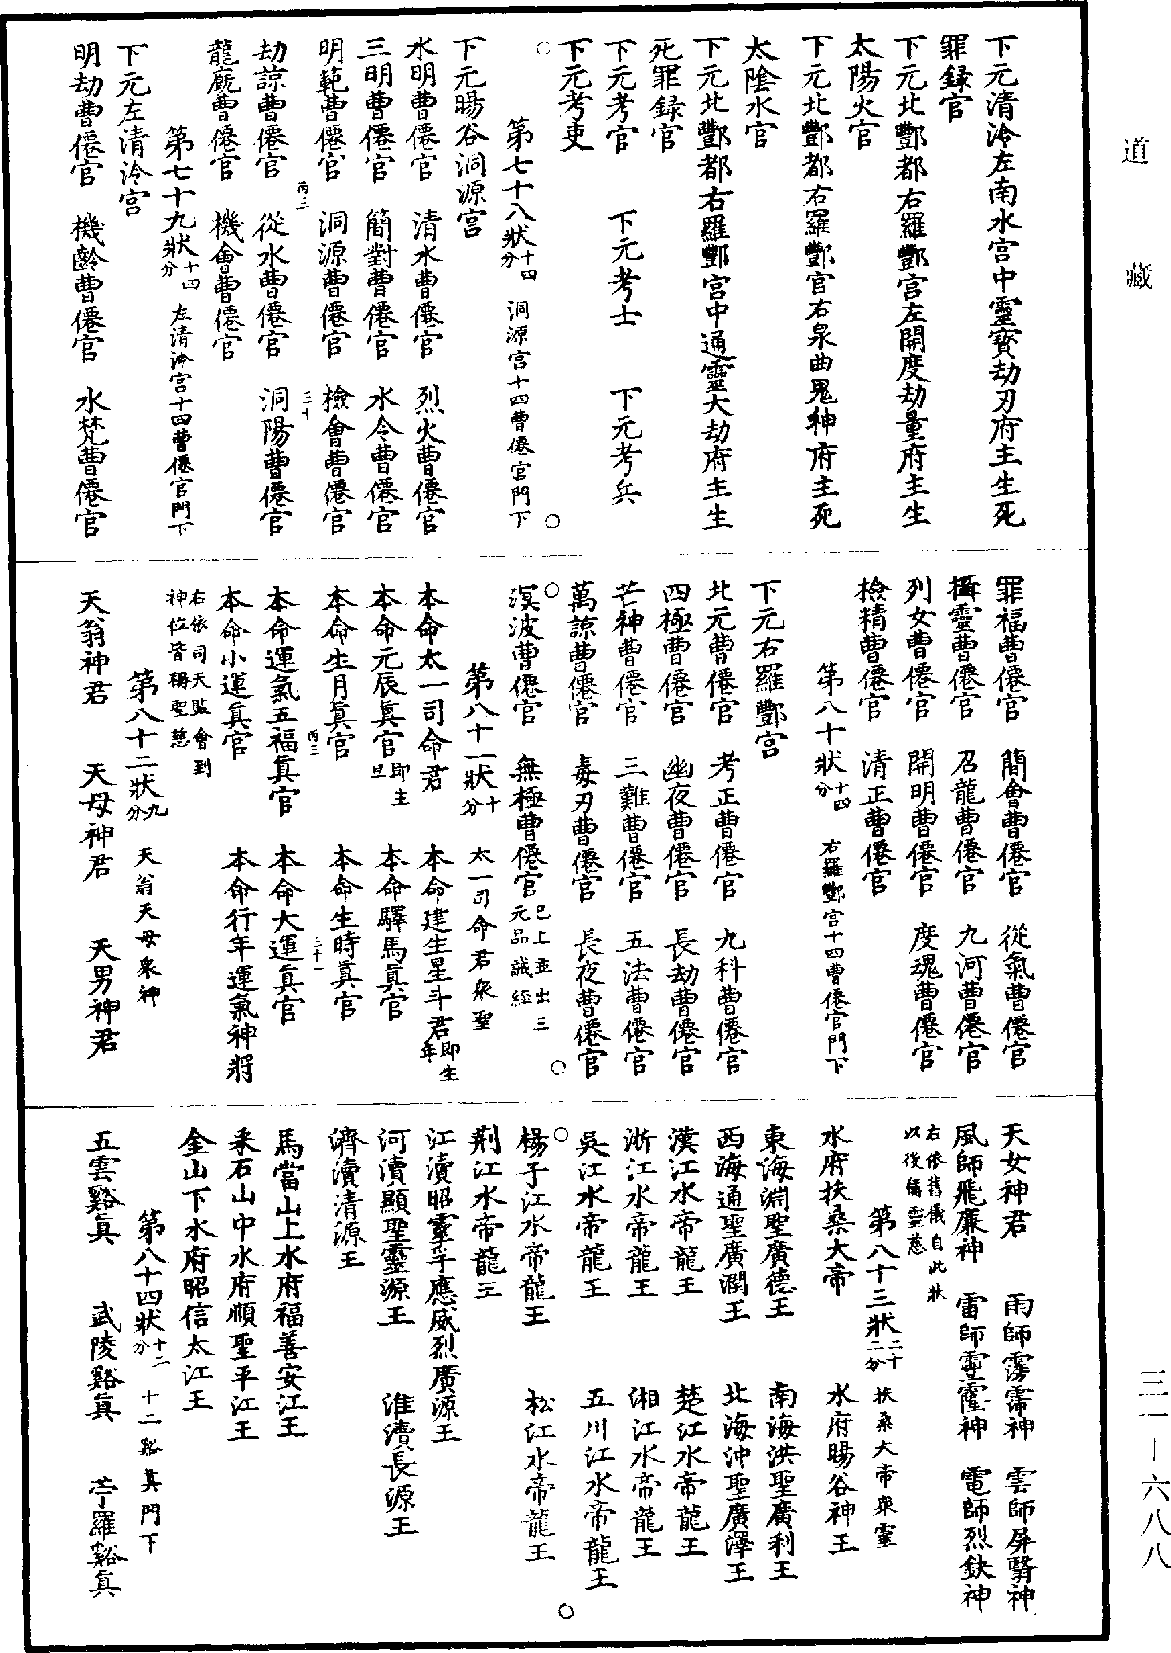 道藏
三一—六八八
下元清泠左南水宫中靈寶劫刃府主生死
罪録官
下元北酆都右羅酆宫左開度劫量府主生
太陽火官
下元北酆都右羅酆官右泉曲鬼神府主死
太陰水官
下元北酆都右羅酆宫中通靈大劫府主生
死罪録官
下元考官 下元考士 下元考兵
下元考吏
第七十八狀十四分 洞源宫十四曹僊官門下
下元暘谷洞源宫
水明曹僊官 清水曹僊官 烈火曹僊官
三明曹僊官 簡對曹僊官 水令曹僊官
明範曹僊官 洞源曹僊官 檢會曹僊官
丙二 三十
劫諒曹僊官 從水曹僊官 洞陽曹僊官
龍廐曹僊官 機會曹僊官
第七十九狀十四分 左清泠宫十四曹僊官門下
下元左清泠宫
明劫曹僊官 機齡曹僊官 水梵曹僊官
罪福曹僊官 簡會曹僊官 從氣曹僊官
攝靈曹僊官 召龍曹僊官 九河曹僊官
列女曹僊官 開明曹僊官 度魂曹僊官
檢精曹僊官 清正曹僊官
第八十狀十四分 右羅酆宫十四曹僊官門下
下元右羅酆宫
北元曹僊官 考正曹僊官 九科曹僊官
四極曹僊官 幽夜曹僊官 長劫曹僊官
芒神曹僊官 三難曹僊官 五法曹僊官
萬諒曹僊官 毒刃曹僊官 長夜曹僊官
溟波曹僊官 無極曹僊官已上並出三元品誡經
第八十一狀十分 太一司命君衆聖
本命太一司命君 本命建生星斗君即生年
本命元辰真官即生旦 本命驛馬真官
本命生月真官 本命生時真官
丙三 三十一
本命運氣五福真官 本命大運真官
本命小運真官 本命行年運氣神將
右依司天監會到
神位皆稱聖慈
第八十二狀九分 天翁天母衆神
天翁神君 天母神君 天男神君
天女神君 雨師霶霈神 雲師屏翳神
風師飛廉神 雷師霹靂神 電師烈鈌神
右依舊儀自此狀
以後稱靈慈
第八十三狀二十二分 扶桑大帝衆靈
水府扶桑大帝 水府暘谷神王
東海淵聖廣德王 南海洪聖廣利王
西海通聖廣潤王 北海沖聖廣澤王
漢江水帝龍王 楚江水帝龍王
浙江水帝龍王 湘江水帝龍王
吳江水帝龍王 五川江水帝龍王
楊子江水帝龍王 松江水帝龍王
荆江水帝龍王
江瀆昭靈孚應威烈廣源王
河瀆顯聖靈源王 淮瀆長源王
濟瀆清源王
馬當山上水府福善安江王
采石山中水府順聖平江王
金山下水府昭信太江王
第八十四狀十二分 十二谿真門下
五雲谿真 武陵谿真 苧羅谿真